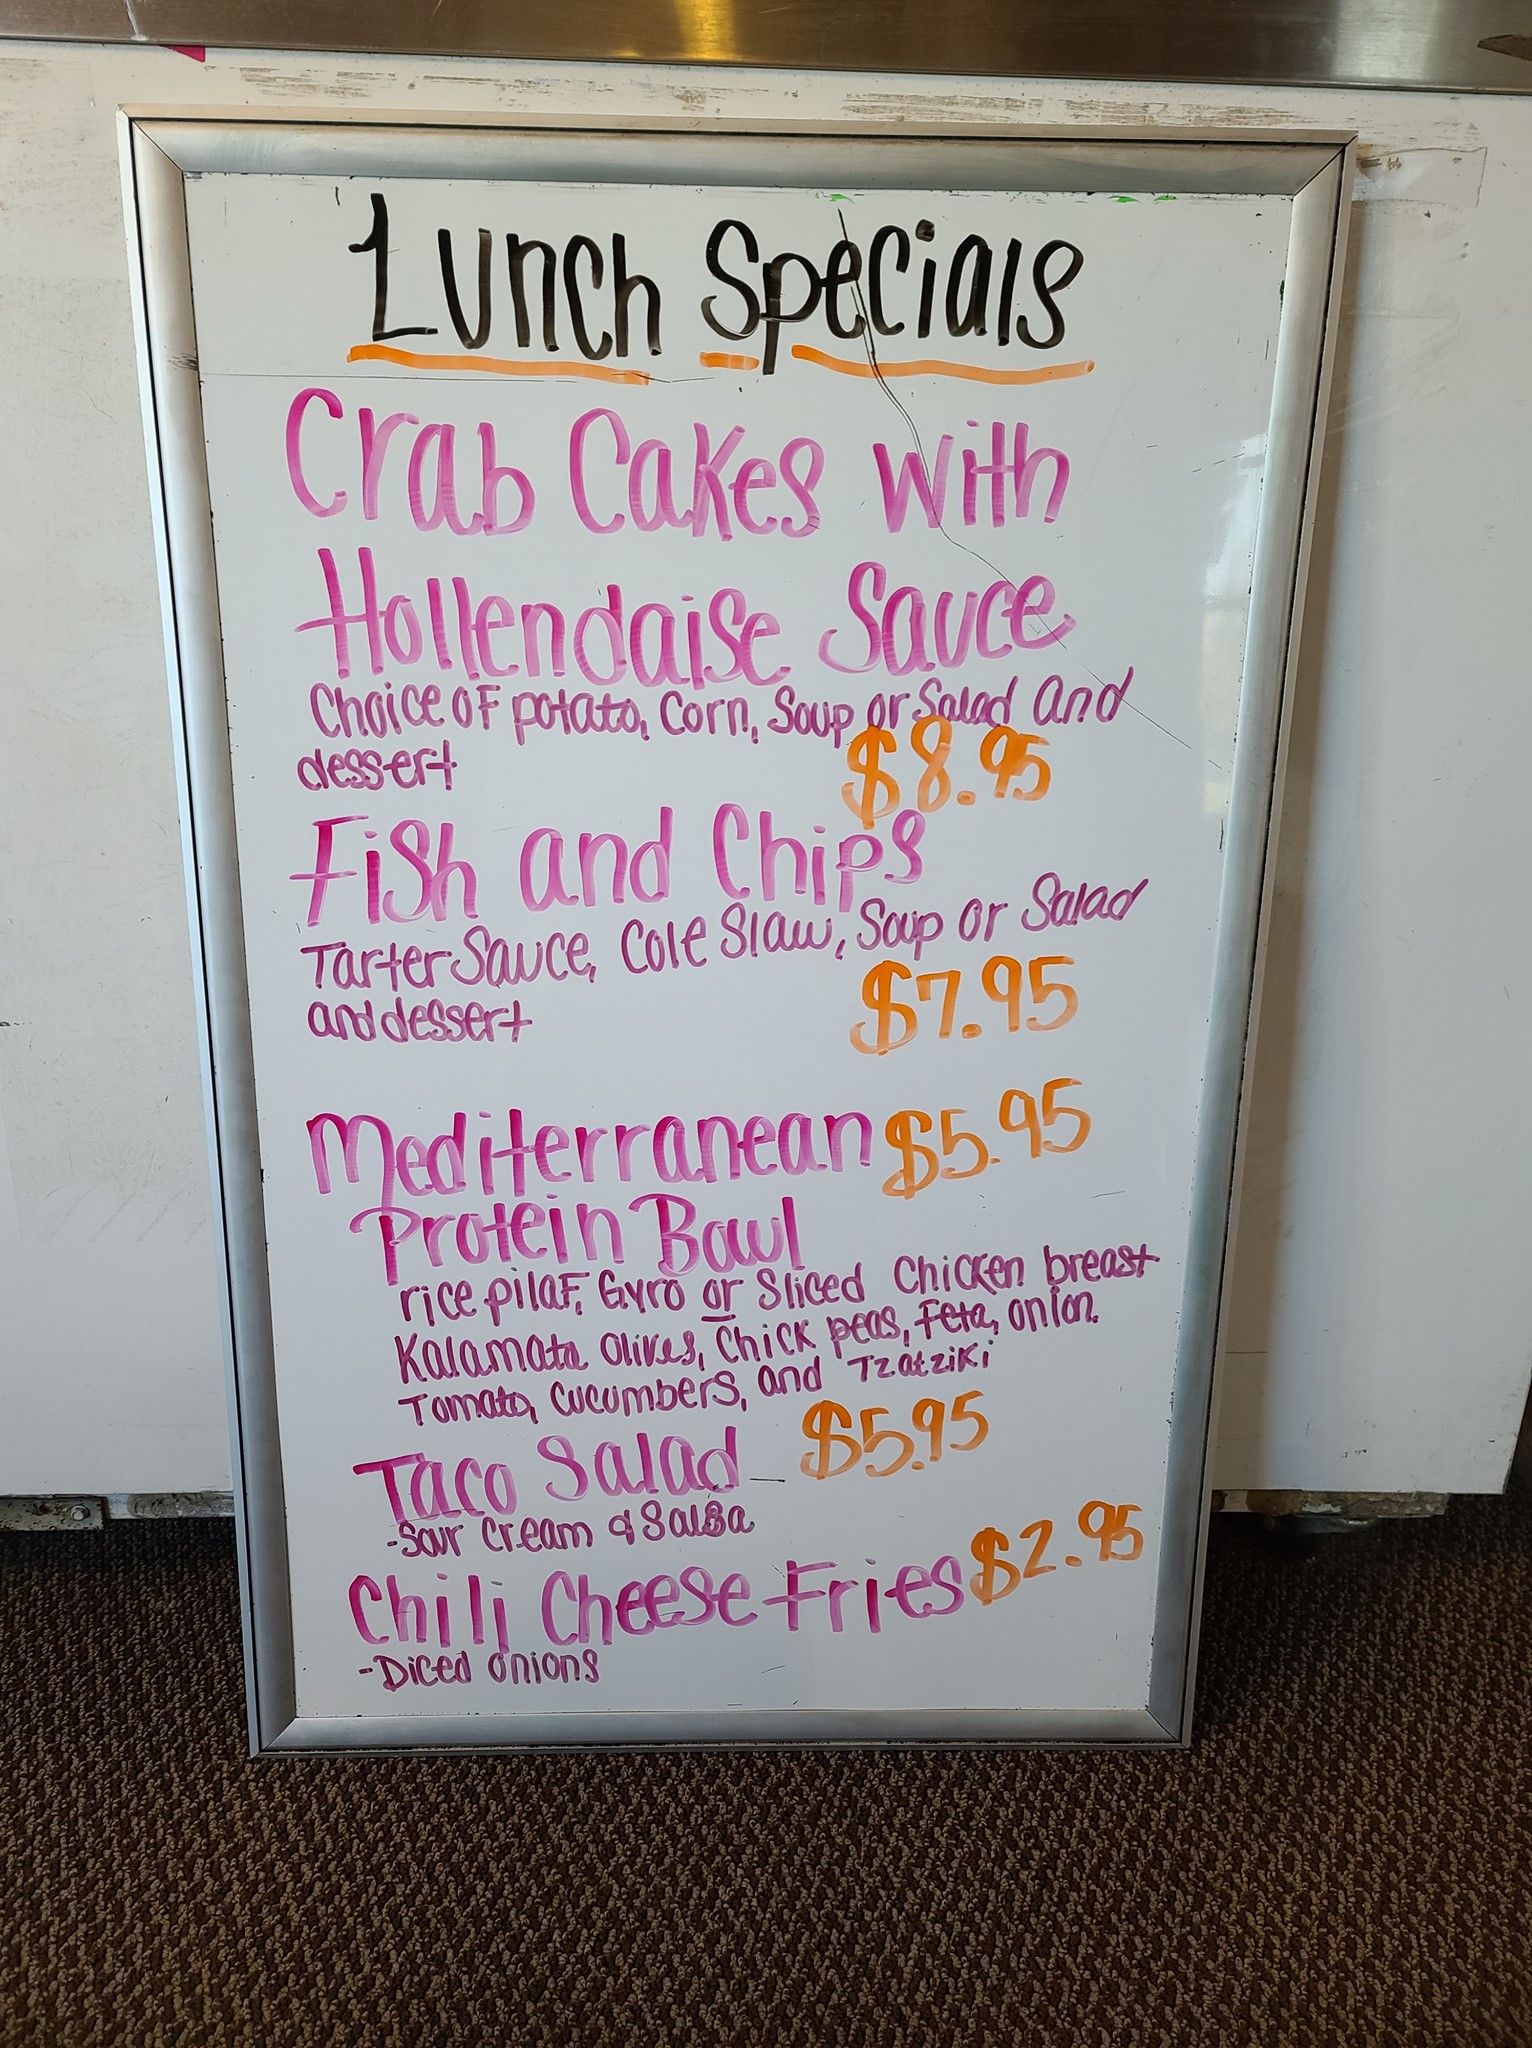 Lunch Specials
Crab Cakes with
Hollendaise Sauce
Choice of potato, Corn, Soup or Salad and
dessert $8.95
Fish and Chips
Tarter Sauce, Cole Slaw, Soup or Salad
and dessert $7.95
Mediterranean $5.95
Protein Bowl
rice pilaf, Gyro or Sliced Chicken breast
Kalamata Olives, Chick peas, Feta, onion,
Tomato, Cucumbers, and Tzatziki
Taco Salad $5.95
-Sour Cream & Salsa
Chili Cheese Fries $2.95
-Diced onions